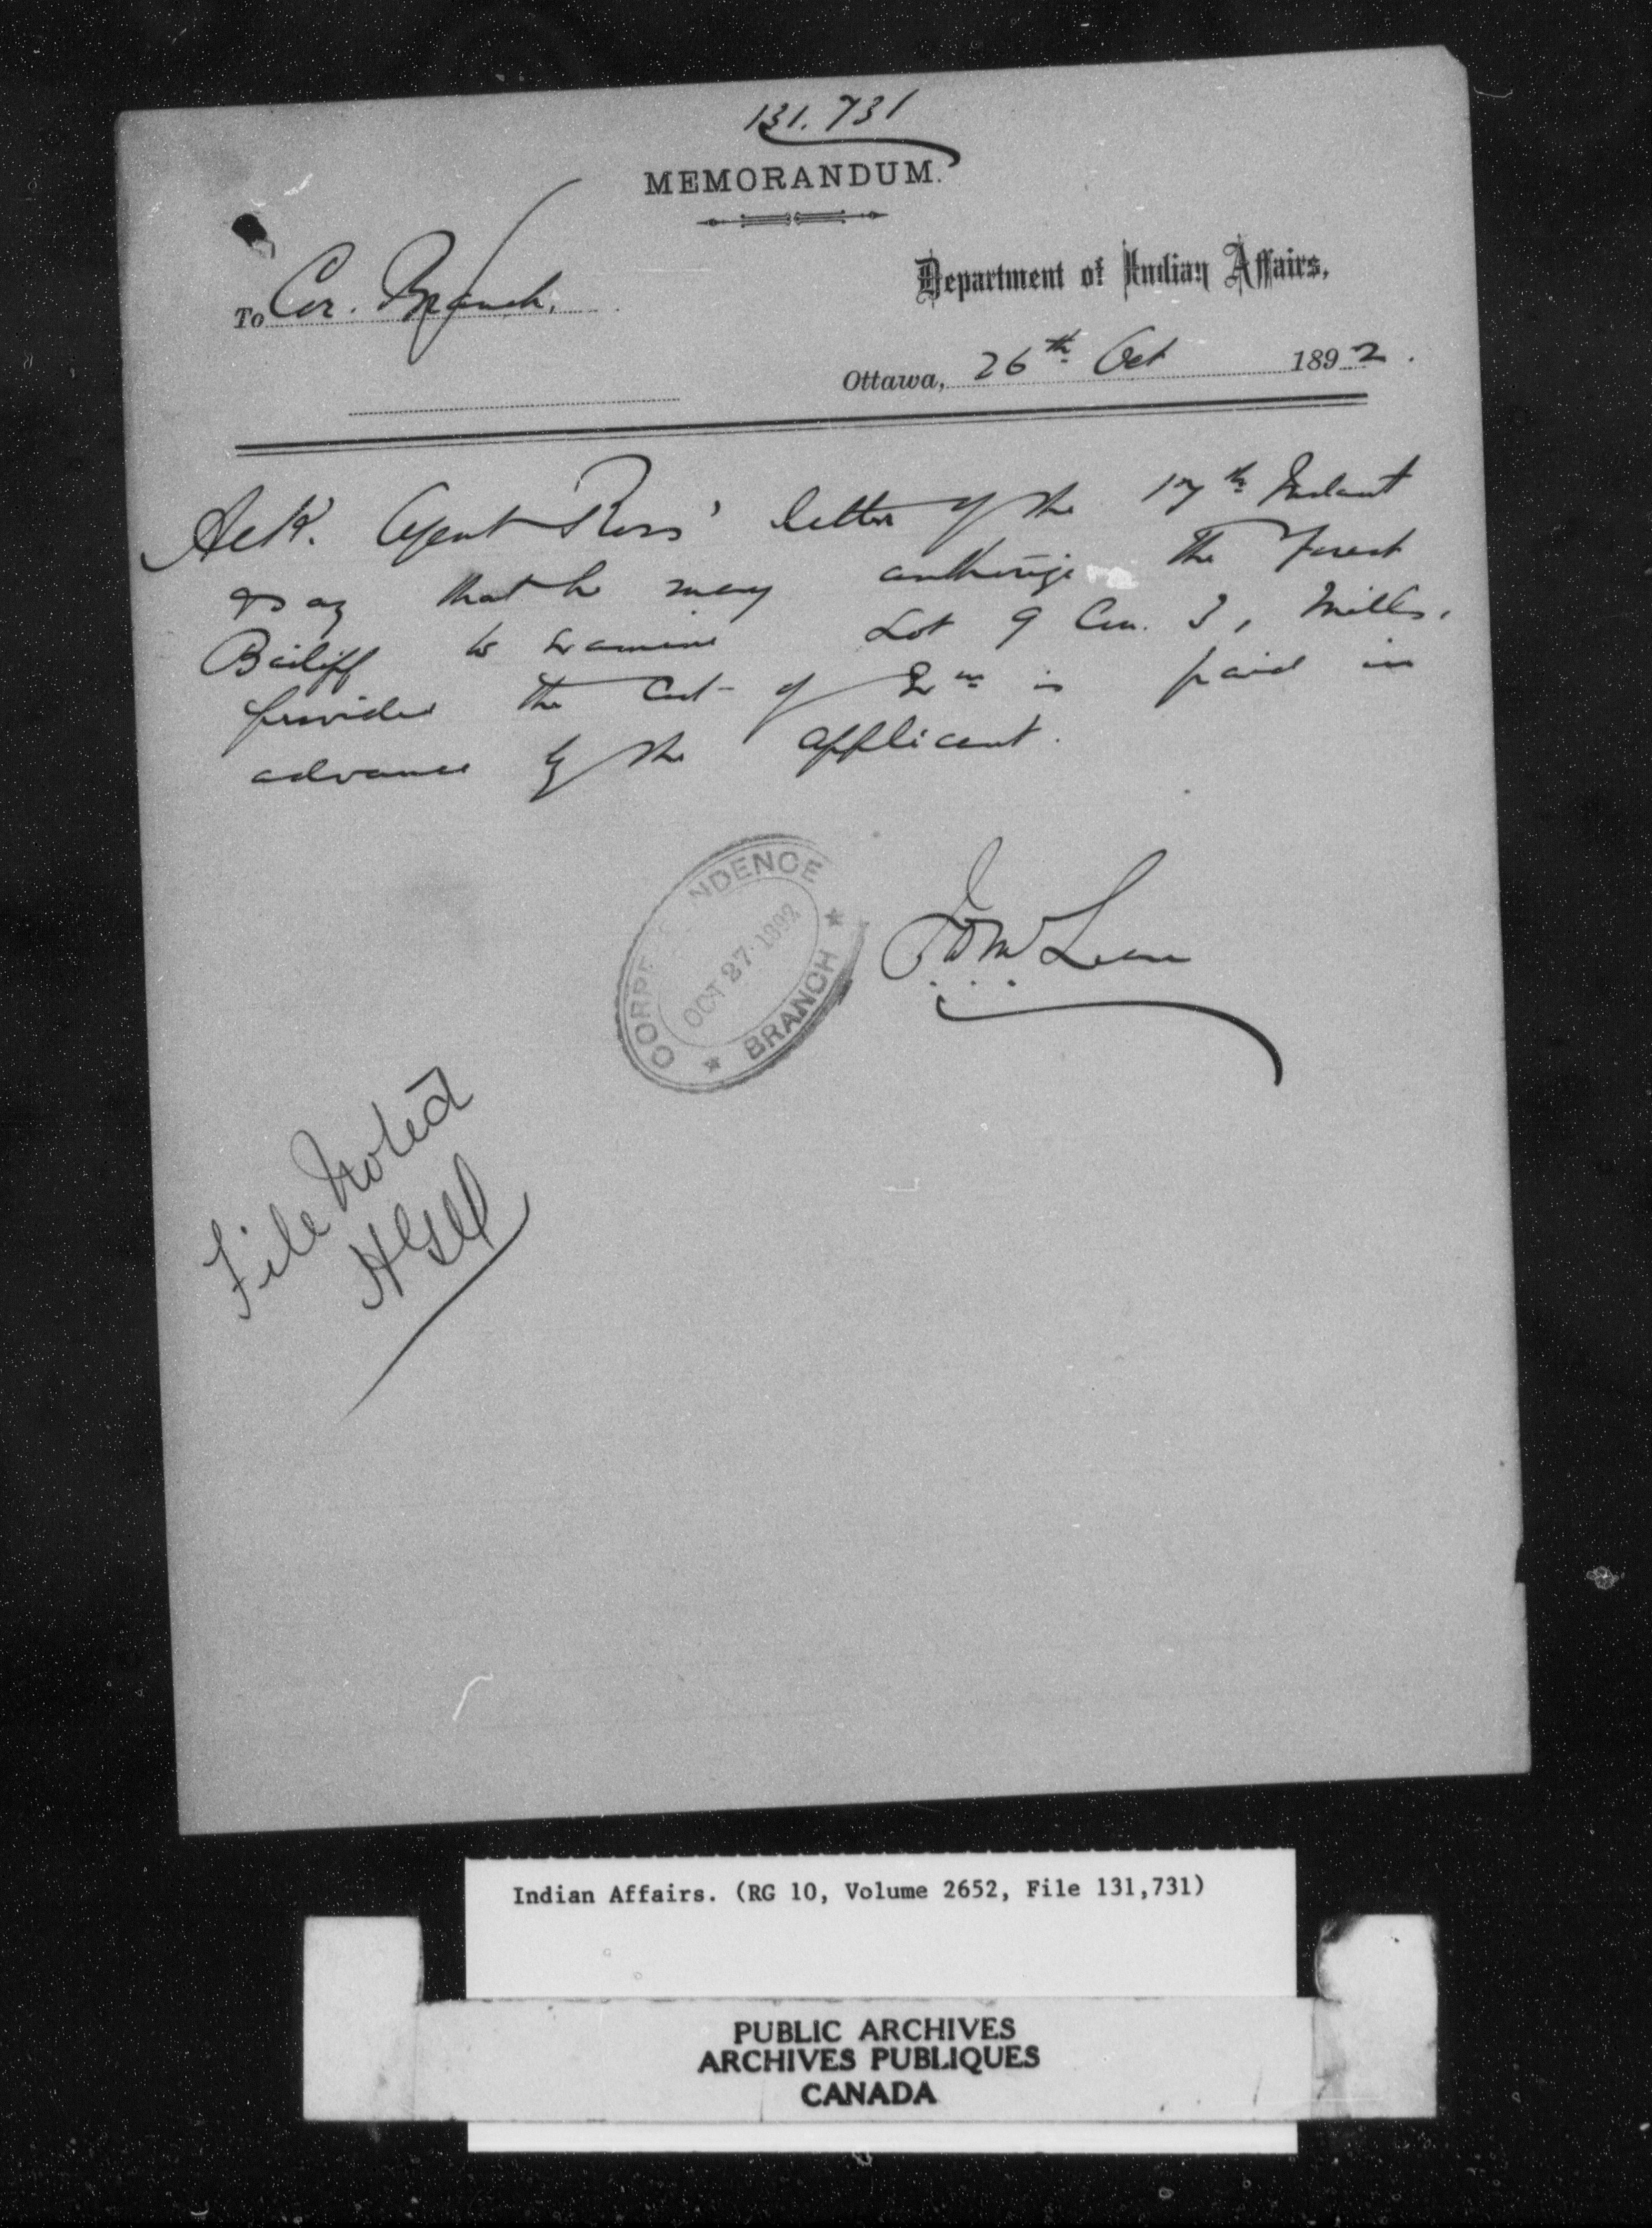 131.731
MEMORANDUM.
Department of Indian Affairs,
To Cor. Branch.
Ottawa, 26th Oct 1892.
Ack. Agent Ross' letter of the 17th Instant
& say that he may authorize the Forest
Bailiff to examine Lot 9 Con. 3, Mills,
provided the cost of Exn is paid in
advance by the applicant.
CORRE NDENCE
OCT 27 1892
BRANCH
J D McLean
File Noted
Indian Affairs. (RG 10, Volume 2652, File 131,731)
PUBLIC ARCHIVES
ARCHIVES PUBLIQUES
CANADA